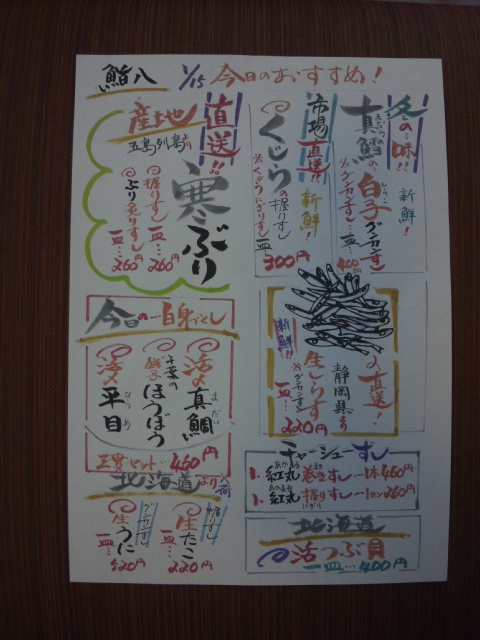 鮨八
1/15 今日のおすすめ!
冬の味!!
真鱈の
まだら
白子グンカンすし
しらこ
新鮮!
グンカンすし…一皿…400円
市場直送!!
新鮮!!
くじらの握りすし
くじらにぎりすし
一皿 300円
直送!!
産地
五島列島より
寒ぶり
握りすし 一皿…260円
ぶり炙りすし 一皿…260円
直送!
静岡県より
新鮮!!
生しらす
グンカンすし
一皿… 220円
今日の白身づくし
活〆真鯛
まだい
千葉の銚子
ほうぼう
活〆平目
ひらめ
三貫セット…460円
チャーシューすし
1. 紅丸巻きすし…1本460円
1. 紅丸握りすし…1カン260円
北海道より入荷
握りすし
生たこ
一皿… 220円
グンカンすし
生うに
一皿… 520円
北海道
活つぶ貝
一皿…400円